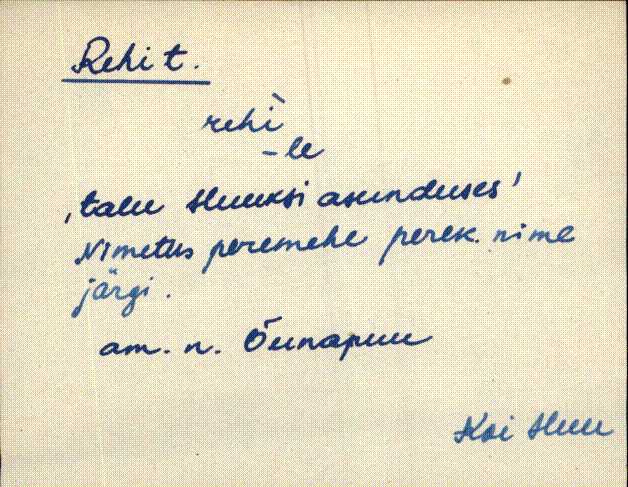 Rehi t.
rehì
-le
‚talu Huuksi asunduses'
Nimetus peremehe perek. nime
järgi.
am. n. Õunapuu
Koi Huu